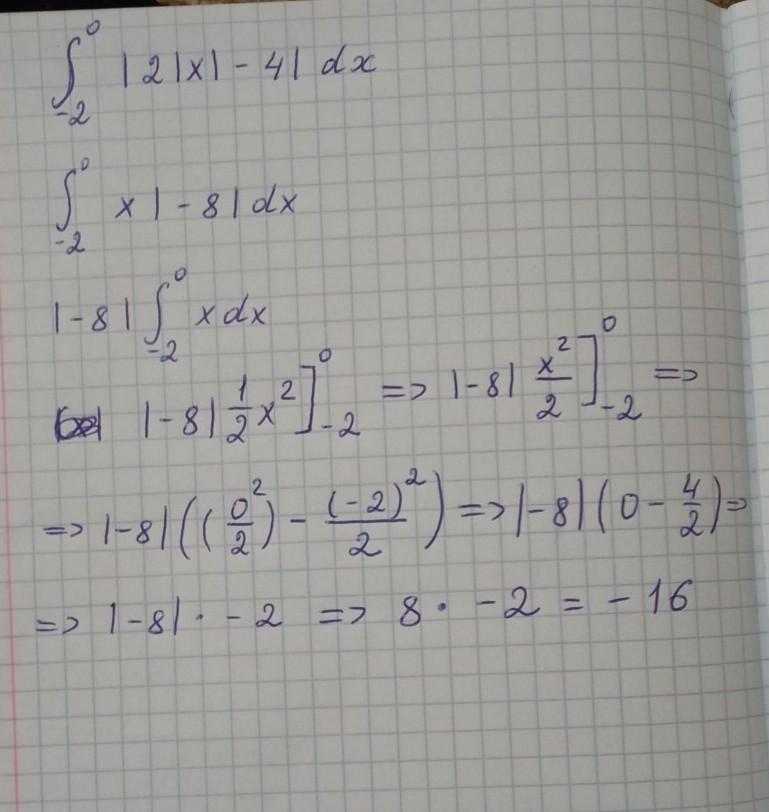 ∫₋₂⁰ |2|x| - 4| dx
∫₋₂⁰ x |-8| dx
|-8| ∫₋₂⁰ x dx
|-8| 1/2 x² ]₋₂⁰ => |-8| x²/2 ]₋₂⁰ =>
=> |-8| ((0²/2) - (-2)²/2) => |-8| (0 - 4/2) =>
=> |-8| · -2 => 8 · -2 = -16